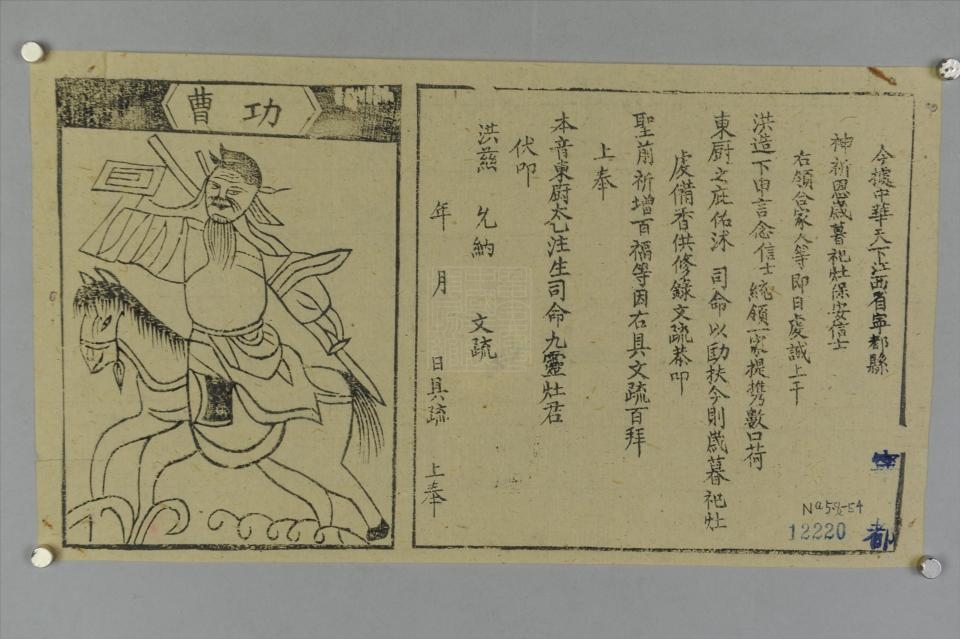 今據中華天下江西省寧都縣
神祈恩歲暮祀灶保安信士
右領合家人等即日虔誠上干
洪造下申言念信士統領一家提携數口荷
東厨之庇佑沭 司命以匡扶今則歲暮祀灶
虔備香供修錄文疏恭叩
聖前祈增百福等因右具文疏百拜
上奉
本音東厨太乙注生司命九靈灶君
伏叩
洪慈 允納 文疏
年 月 日具疏 上奉
功曹
寧都
12220